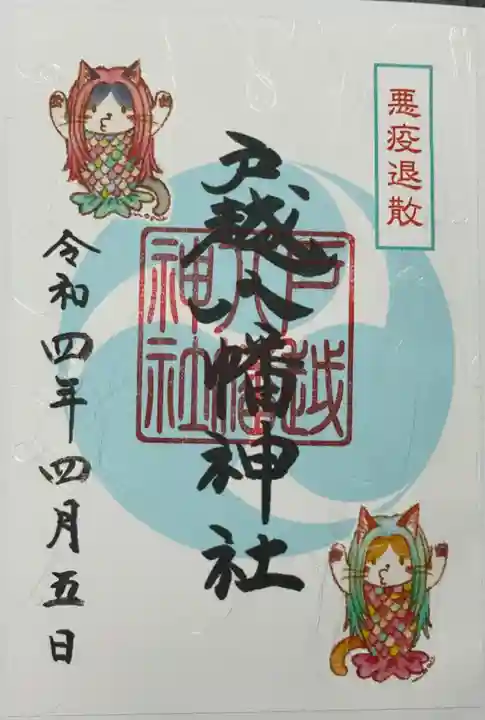 悪疫退散
戸越八幡神社
戸越
八幡
神社
令和四年四月五日